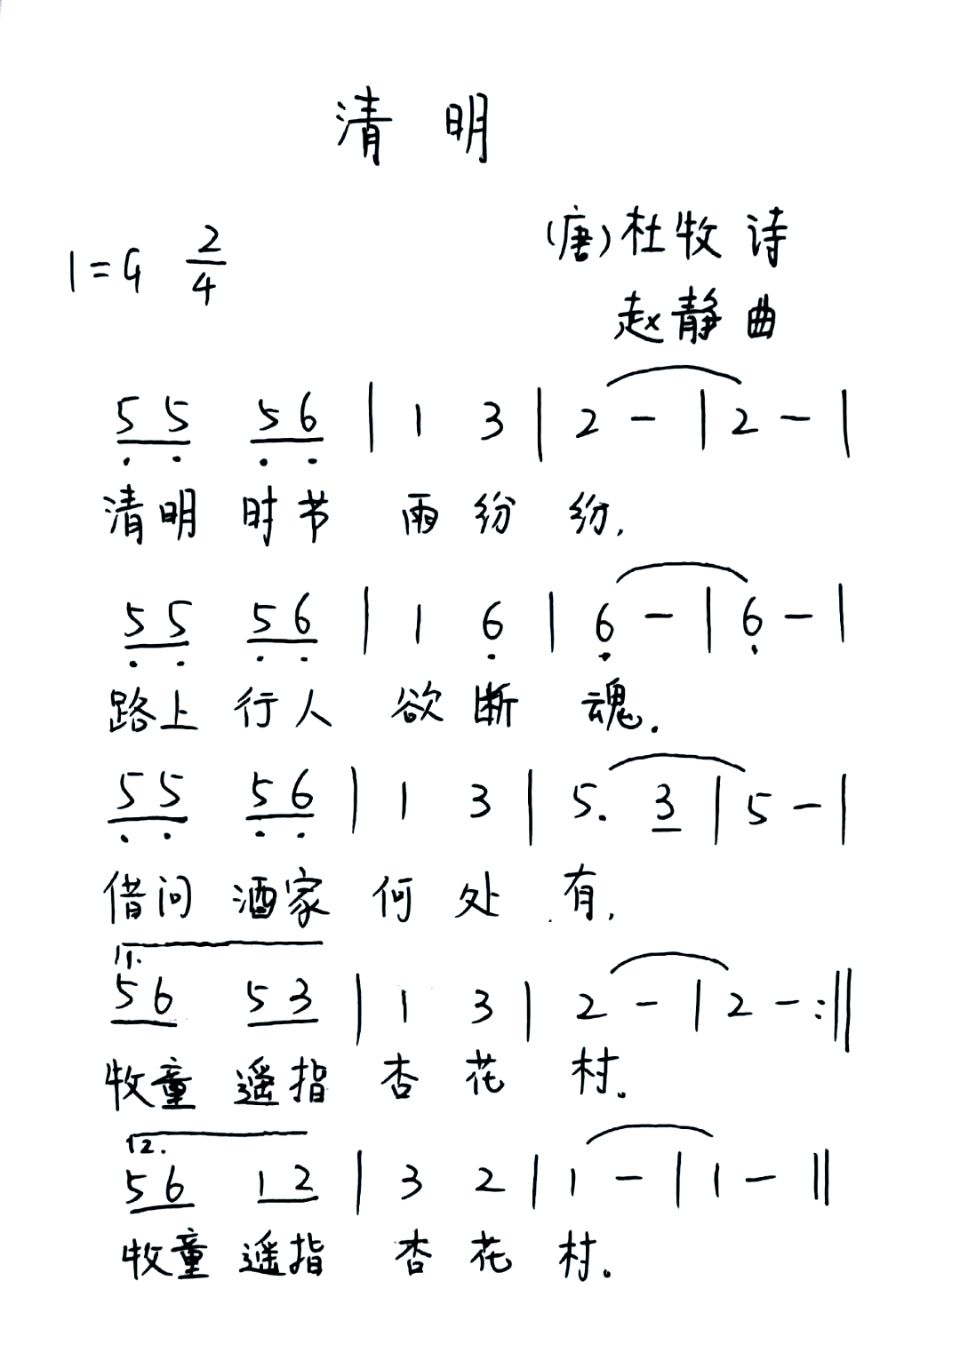 清明
1=G 2/4
(唐)杜牧 诗
赵静 曲
5̣5̣ 5̣6̣ | 1 3 | 2 - | 2 - |
清明 时节 雨 纷 纷,
5̣5̣ 5̣6̣ | 1 6̣ | 6̣ - | 6̣ - |
路上 行人 欲 断 魂.
5̣5̣ 5̣6̣ | 1 3 | 5. 3 | 5 - |
借问 酒家 何 处 有,
1.
56 53 | 1 3 | 2 - | 2 - :||
牧童 遥指 杏 花 村.
2.
56 12 | 3 2 | 1 - | 1 - ||
牧童 遥指 杏 花 村.